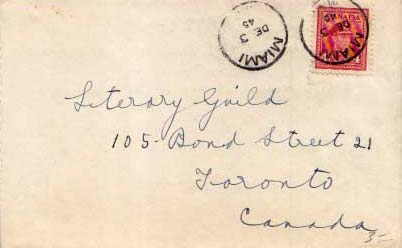 MIAMI
DE 3
45
CANADA
MIAMI
DE 3
45
4
Literary Guild
105- Bond Street 21
Toronto
Canada
3-